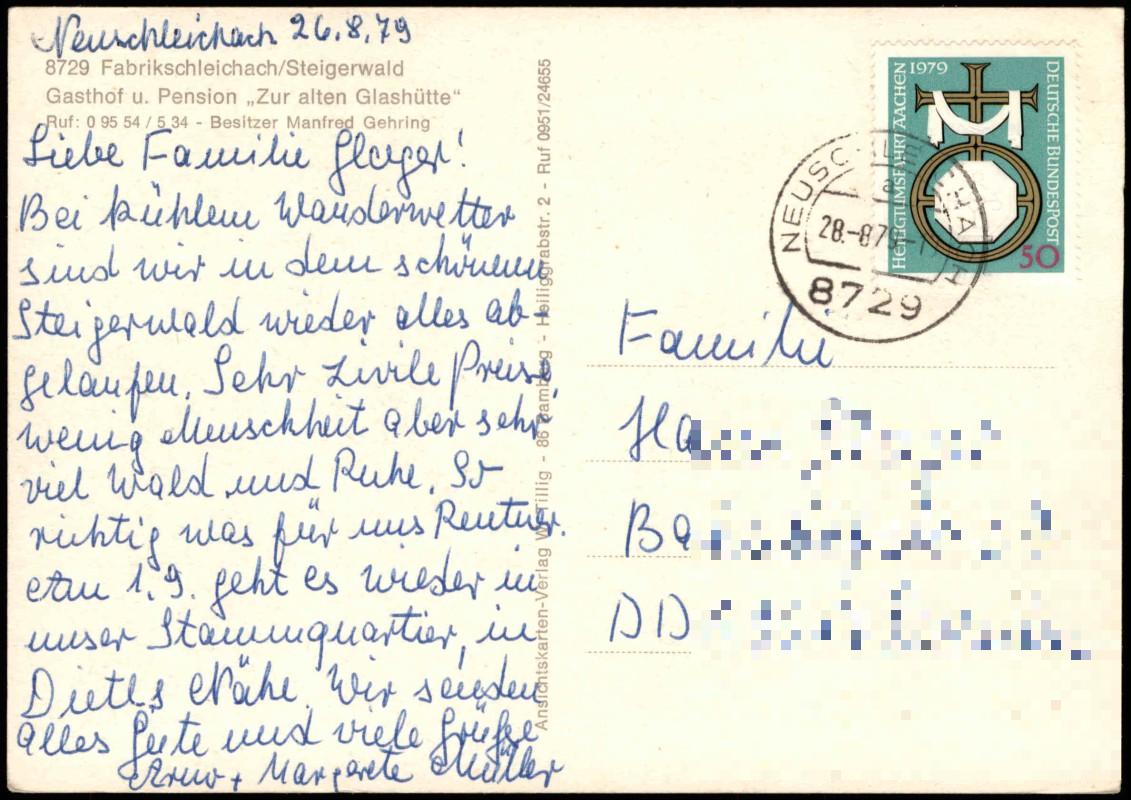 Neuschleichach 26.8.79
8729 Fabrikschleichach/Steigerwald
Gasthof u. Pension „Zur alten Glashütte“
Ruf: 0 95 54 / 5 34 - Besitzer Manfred Gehring
Liebe Familie
Bei kühlem Wanderwetter
sind wir in dem schönen
Steigerwald wieder alles ab-
gelaufen. Sehr zivile Preise,
wenig Menschheit aber sehr
viel Wald und Ruhe. So
richtig was für uns Rentner.
Am 1.9. geht es wieder in
unser Stammquartier, in
Nähe. Wir senden
alles Gute und viele Grüße
+ Margarete Müller
Ansichtskarten-Verlag W. Tillig - 86 Bamberg - Heiliggrabstr. 2 - Ruf 0951/24655
HEILIGTUMSFAHRT AACHEN 1979
DEUTSCHE BUNDESPOST
50
28.-8.79
8729
Familie
Ha
Ba
DD